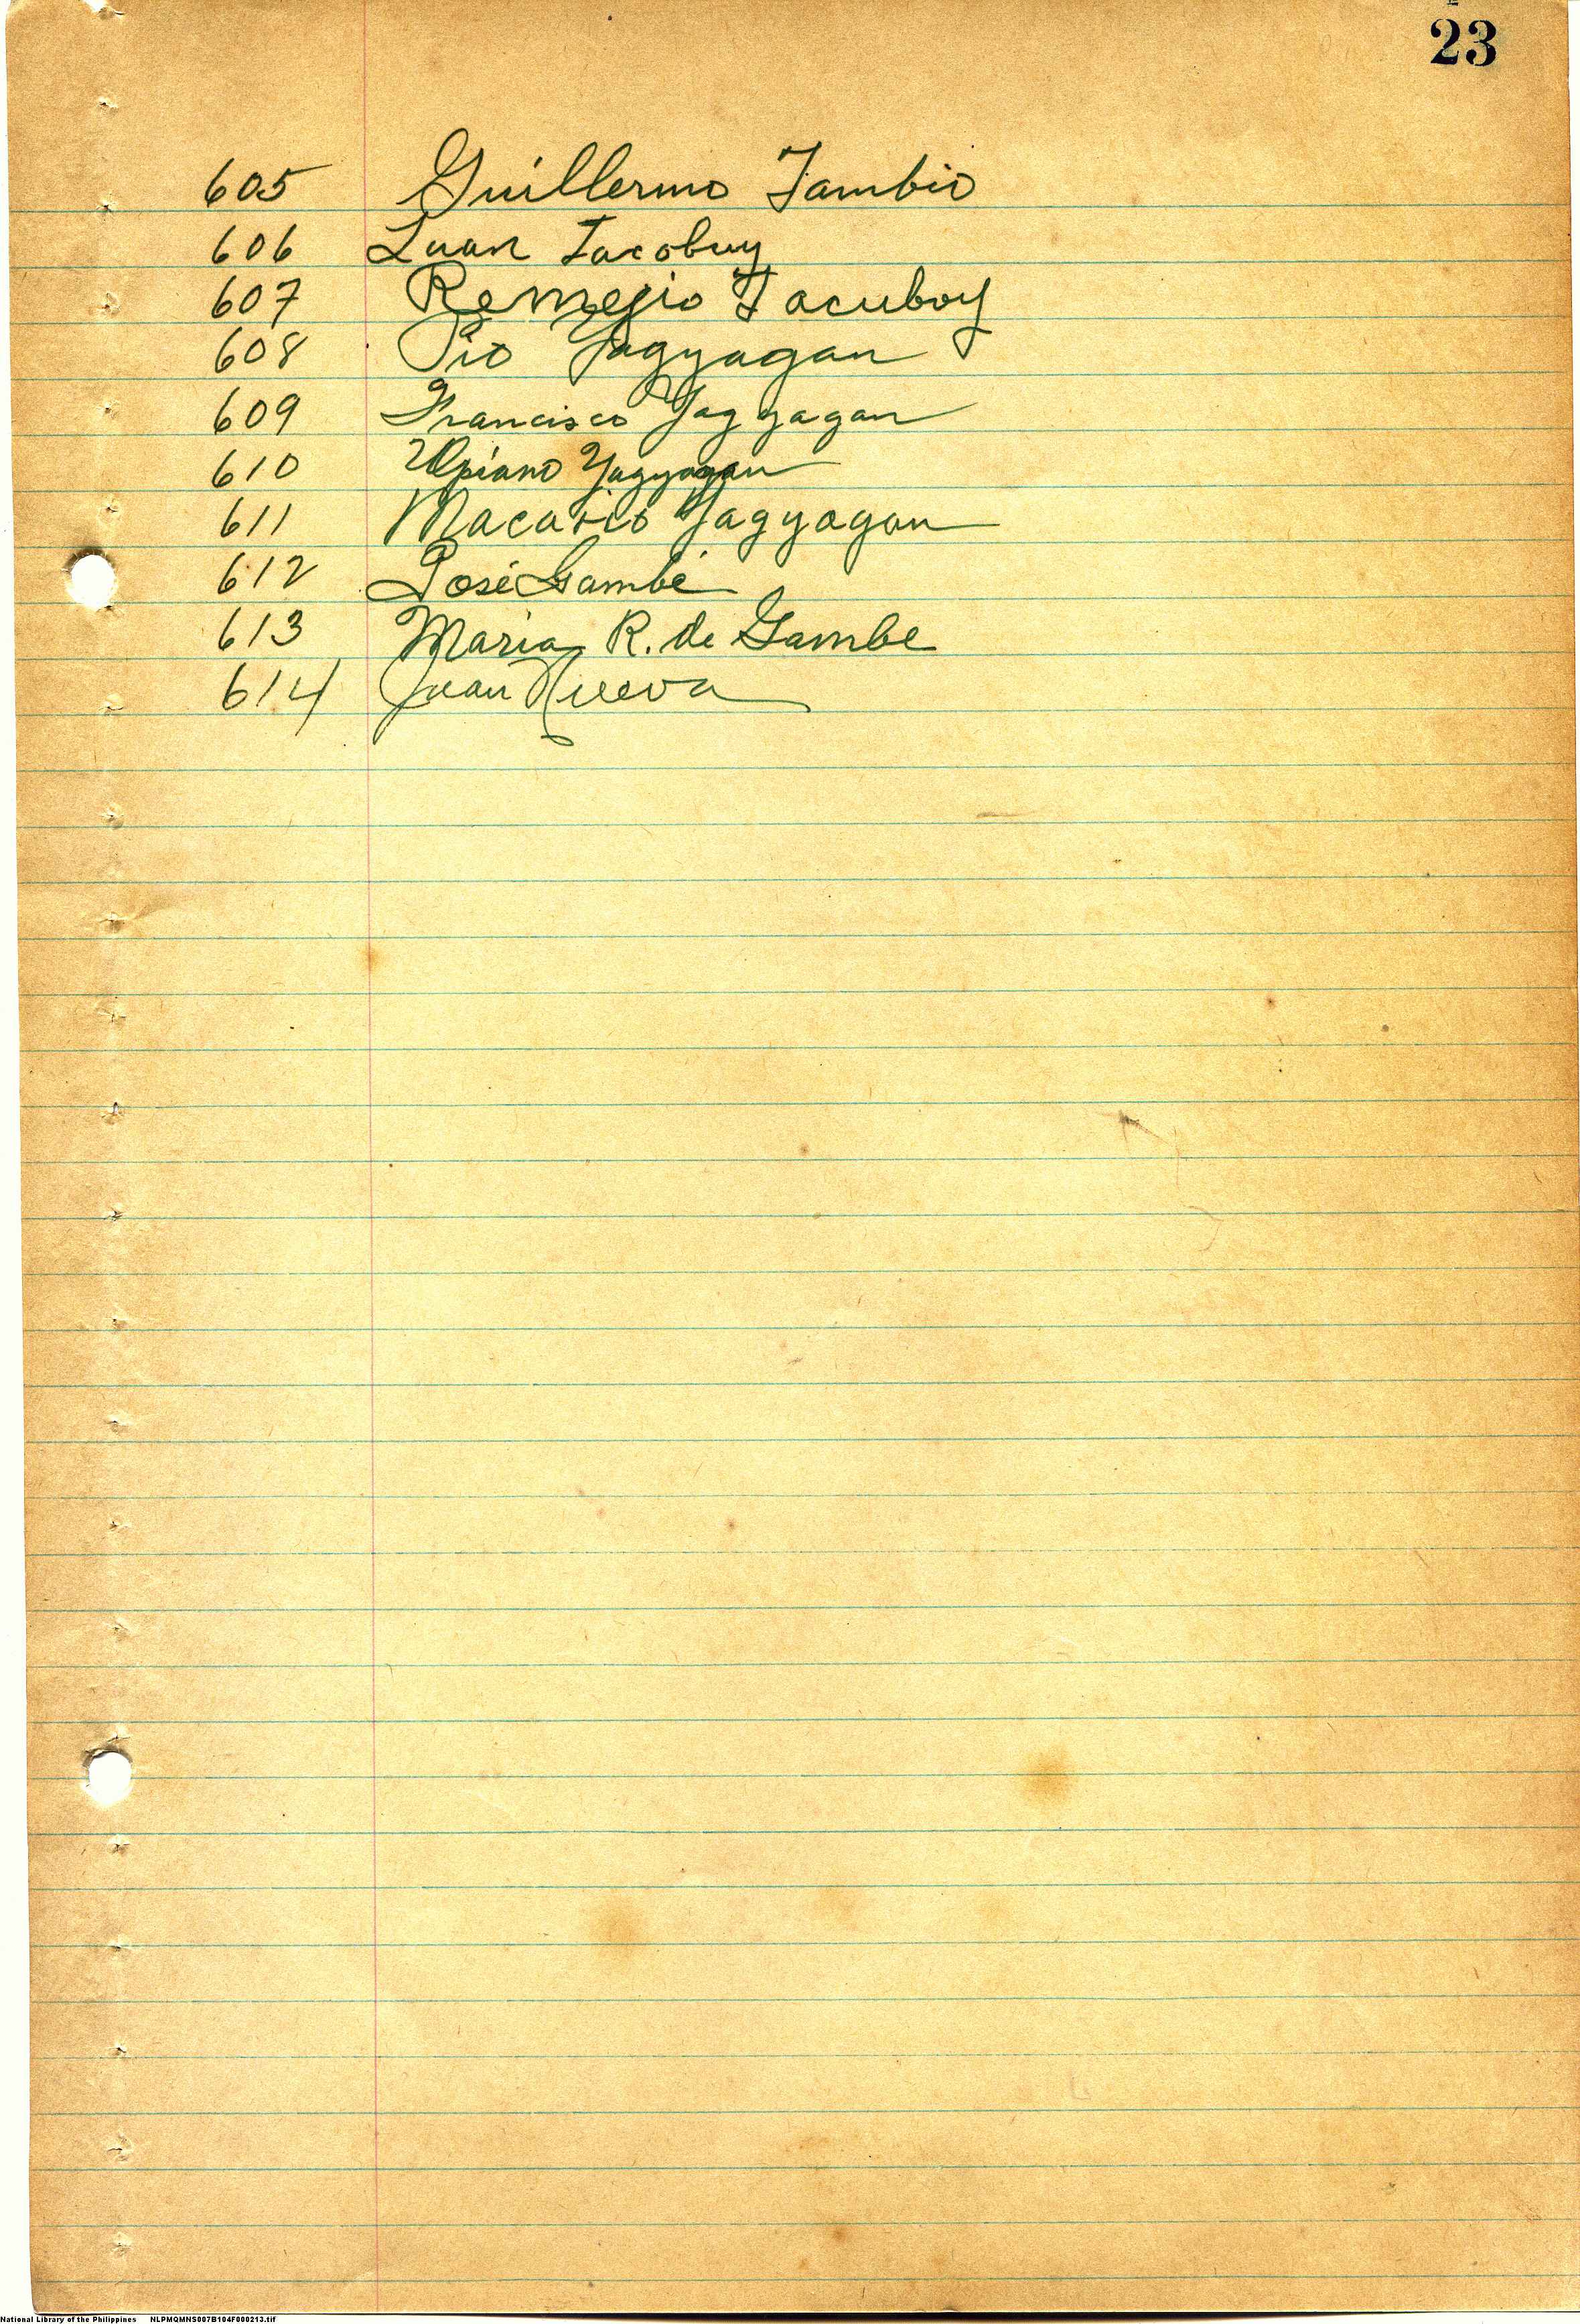 23
605 Guillermo Tambio
606 Juan Tacobuy
607 Remejio Tacuboy
608 Pio Yagyagan
609 Francisco Yagyagan
610 Ulpiano Yagyagan
611 Macario Yagyagan
612 José Gambe
613 Maria R. de Gambe
614 Juan Nueva
National Library of the Philippines NLPMQMNS007B104F000213.tif